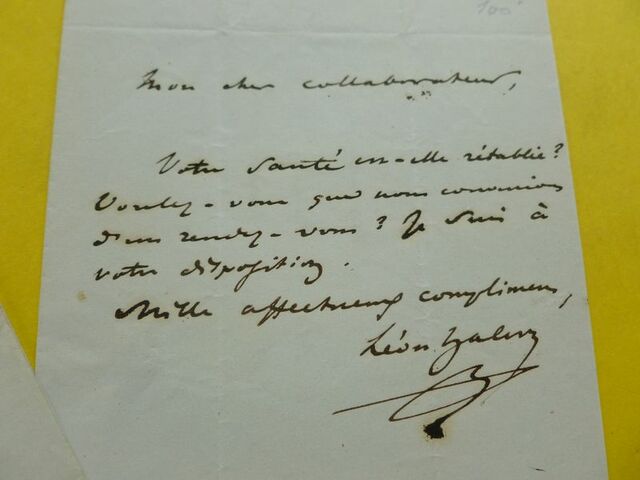 100
Mon cher collaborateur,
Votre santé est-elle rétablie?
Voulez-vous que nous convenions
d'un rendez-vous? Je suis à
votre disposition.
Mille affectueux complimens,
Léon Halévy